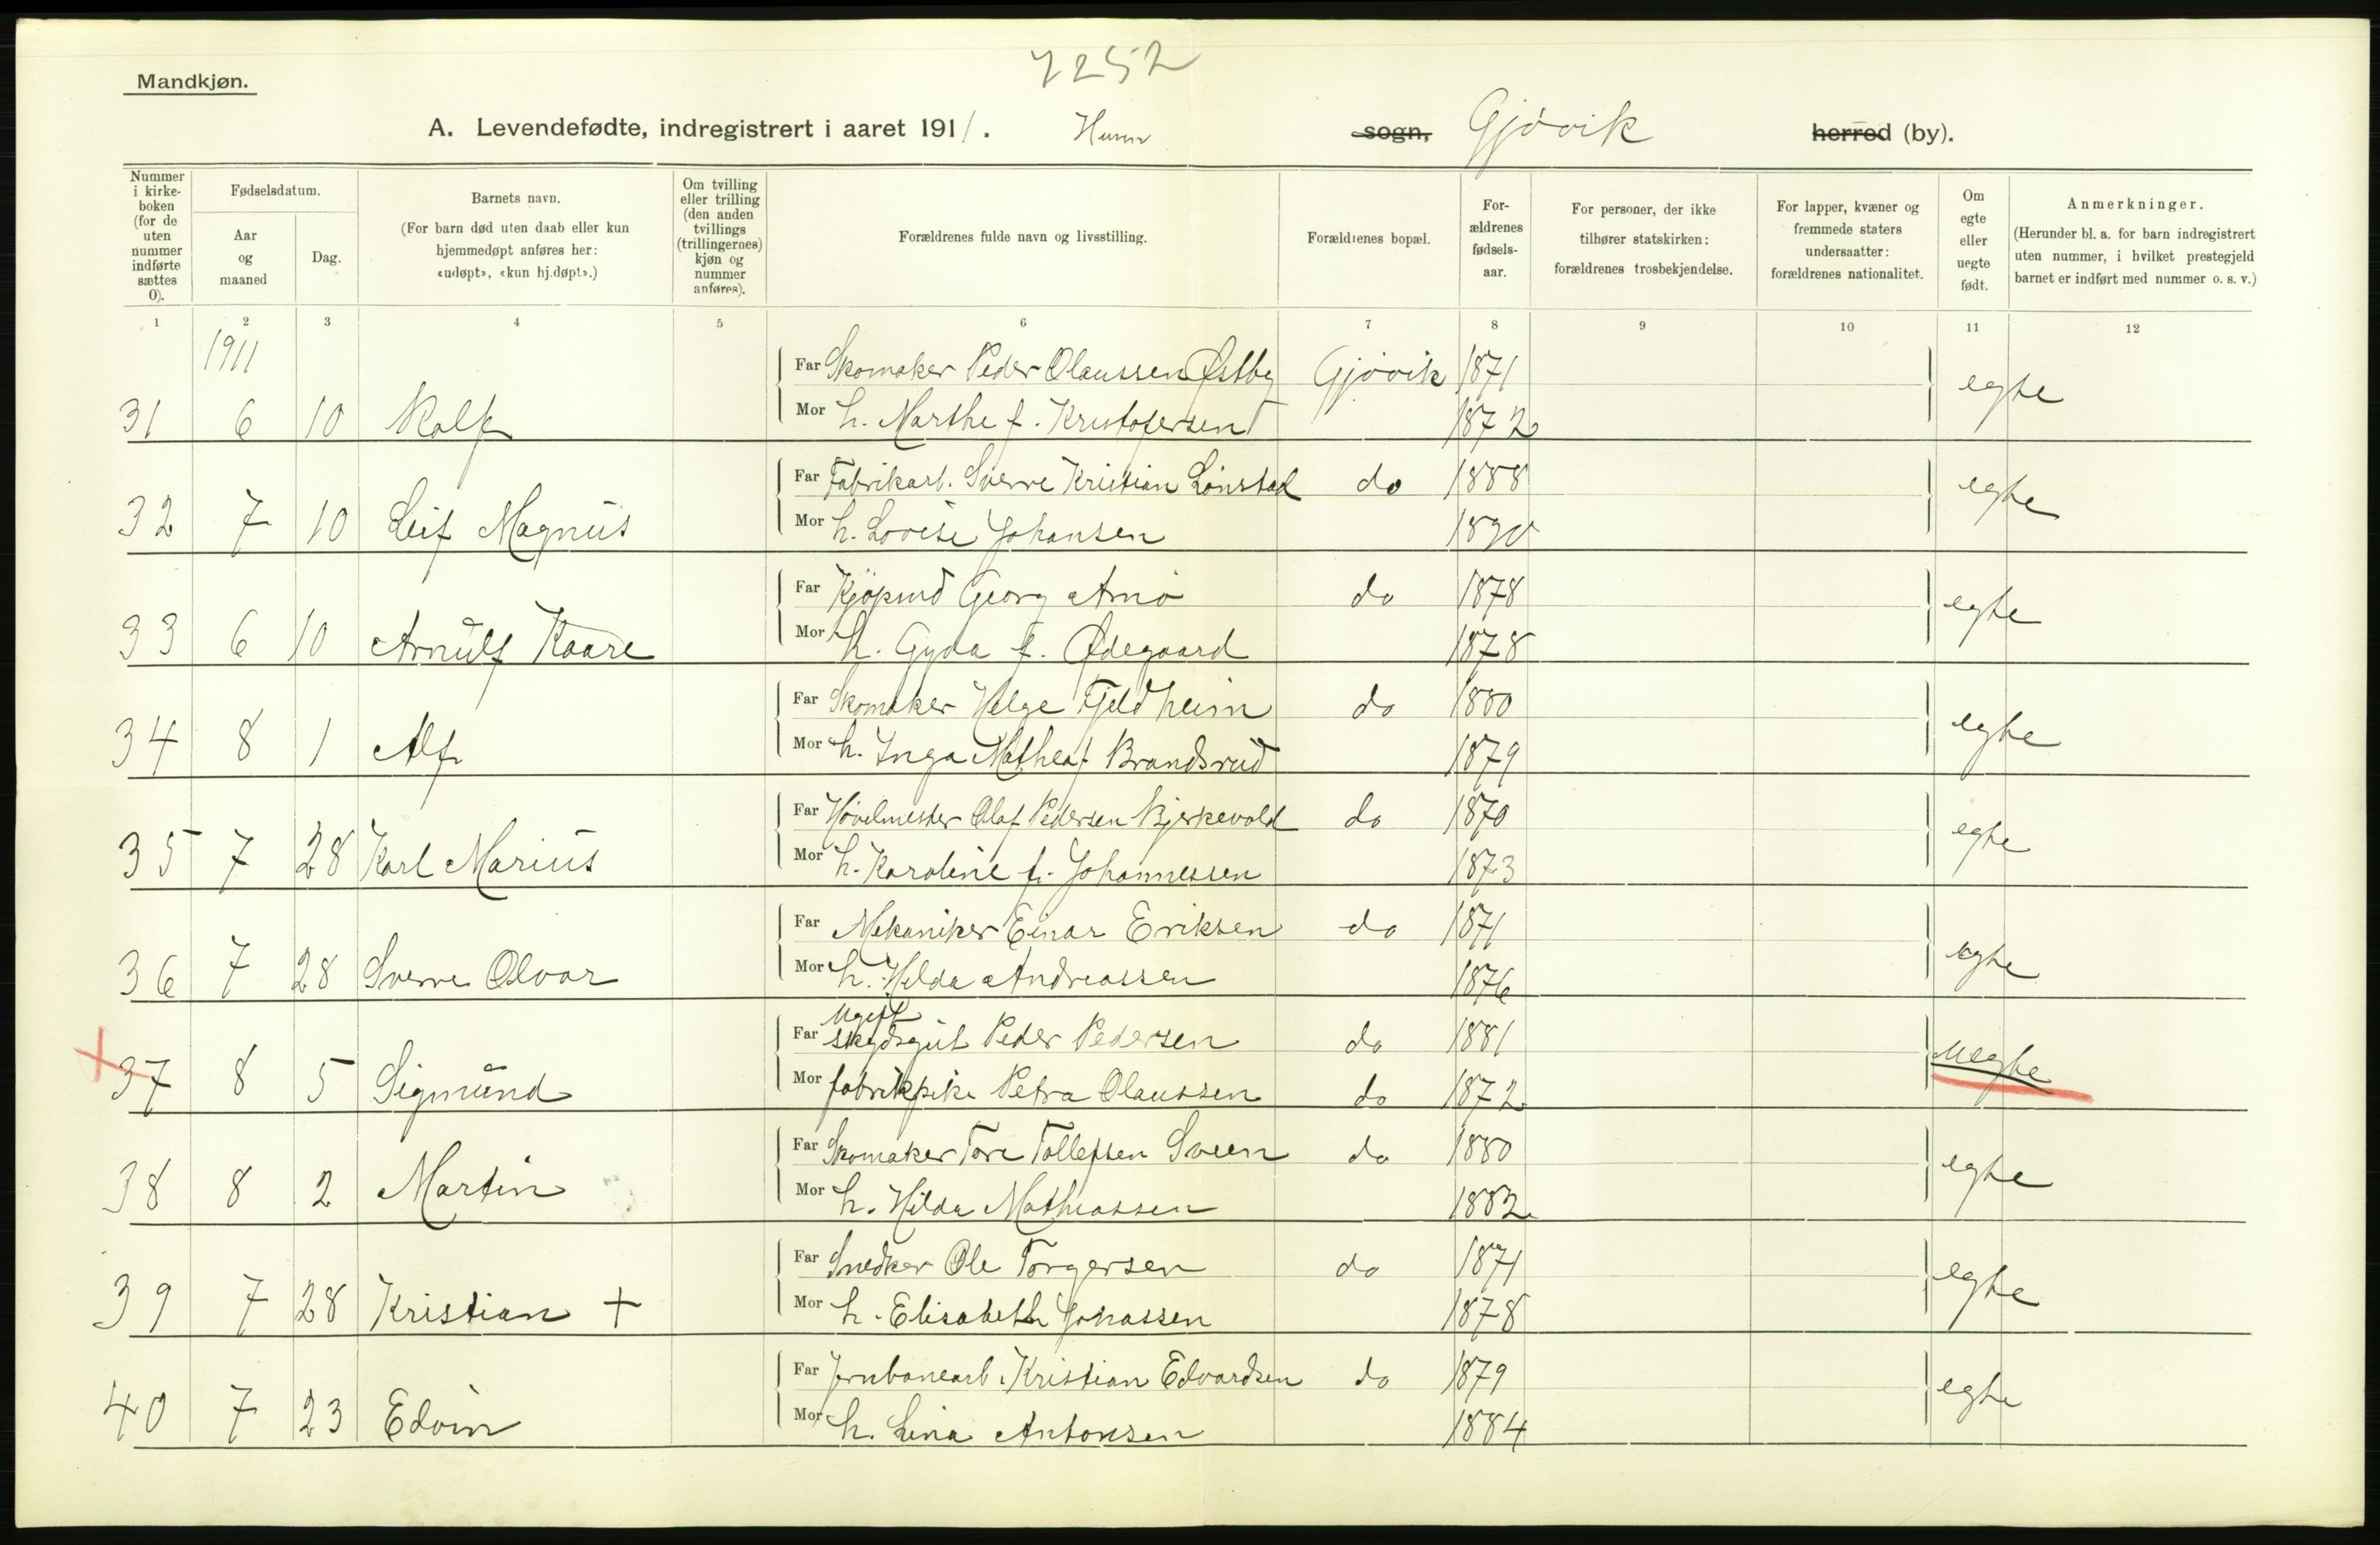 7252
Mandkjøn.
A. Levendefødte, indregistrert i aaret 1911. Hunn sogn, Gjøvik herred (by).
Nummer i kirkeboken (for de uten nummer indførte sættes 0).
Fødselsdatum.
Aar og maaned
Dag.
Barnets navn.
(For barn død uten daab eller kun hjemmedøpt anføres her: «udøpt», «kun hj.døpt».)
Om tvilling eller trilling (den anden tvillings (trillingernes) kjøn og nummer anføres).
Forældrenes fulde navn og livsstilling.
Forældrenes bopæl.
For-ældrenes fødsels-aar.
For personer, der ikke tilhører statskirken: forældrenes trosbekjendelse.
For lapper, kvæner og fremmede staters undersaatter: forældrenes nationalitet.
Om egte eller uegte født.
Anmerkninger.
(Herunder bl. a. for barn indregistrert uten nummer, i hvilket prestegjeld barnet er indført med nummer o. s. v.)
1 2 3 4 5 6 7 8 9 10 11 12
1911
Far Skomaker Peder Olaussen Østby Gjøvik 1871
31 6 10 Rolf Mor h. Marthe f. Kristofersen 1872 egte
Far Fabrikarb. Sverre Kristian Lönstad do 1888
32 7 10 Leif Magnus Mor h. Lovise Johansen 1890 egte
Far Kjøpmd Georg Arnö do 1878
33 6 10 Arnulf Kaare Mor h. Gyda f. Ødegaard 1878 egte
Far Skomaker Helge Fjeldheim do 1880
34 8 1 Alf Mor h. Inga Mathea f Brandsrud 1879 egte
Far Hövelmester Olaf Pedersen Bjerkevold do 1870
35 7 28 Karl Marius Mor h. Karoline f. Johannessen 1873 egte
Far Mekaniker Einar Eriksen do 1871
36 7 28 Sverre Olvar Mor h. Hilda Andreassen 1876 egte
Ugift
Far skydsgut Peder Pedersen do 1881
+ 37 8 5 Sigmund Mor fabrikpike Petra Olaussen do 1872 uegte
Far Skomaker Tore Tollefsen Sveen do 1880
38 8 2 Martin Mor h. Hilda Mathiassen 1882 egte
Far Snedker Ole Torgersen do 1871
39 7 28 Kristian + Mor h. Elisabeth Jonassen 1878 egte
Far Jernbanearb. Kristian Edvardsen do 1879
40 7 23 Edvin Mor h. Lina Antonsen 1884 egte